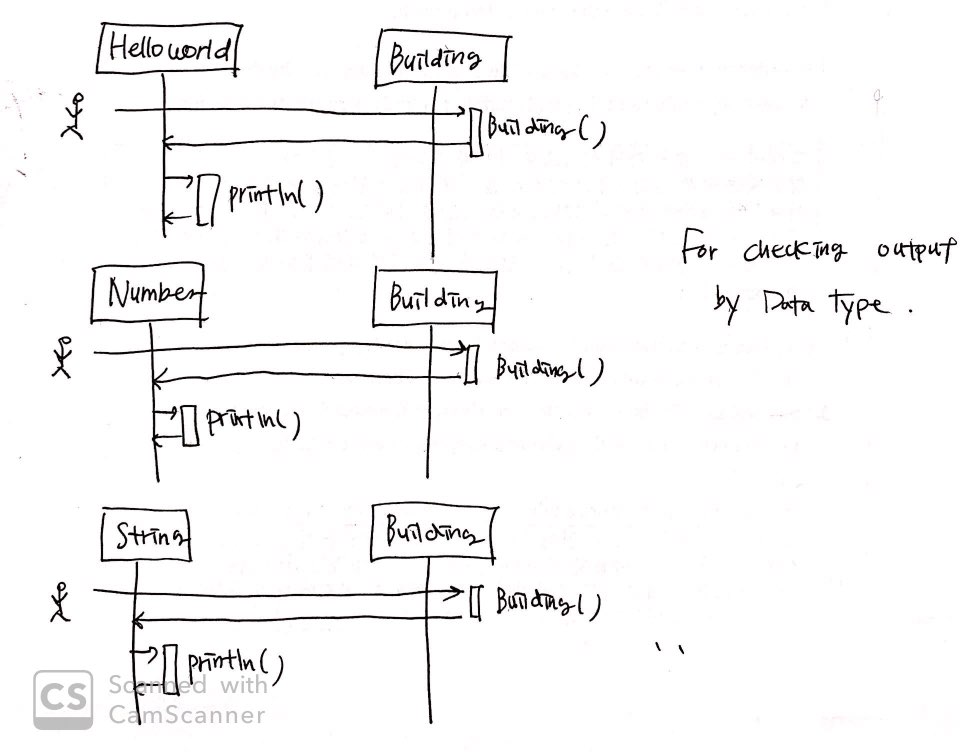 Hello world
Building
Building()
println()
For checking output
by Data type.
Number
Building
Building()
println()
String
Building
Building()
println()
CS Scanned with
CamScanner